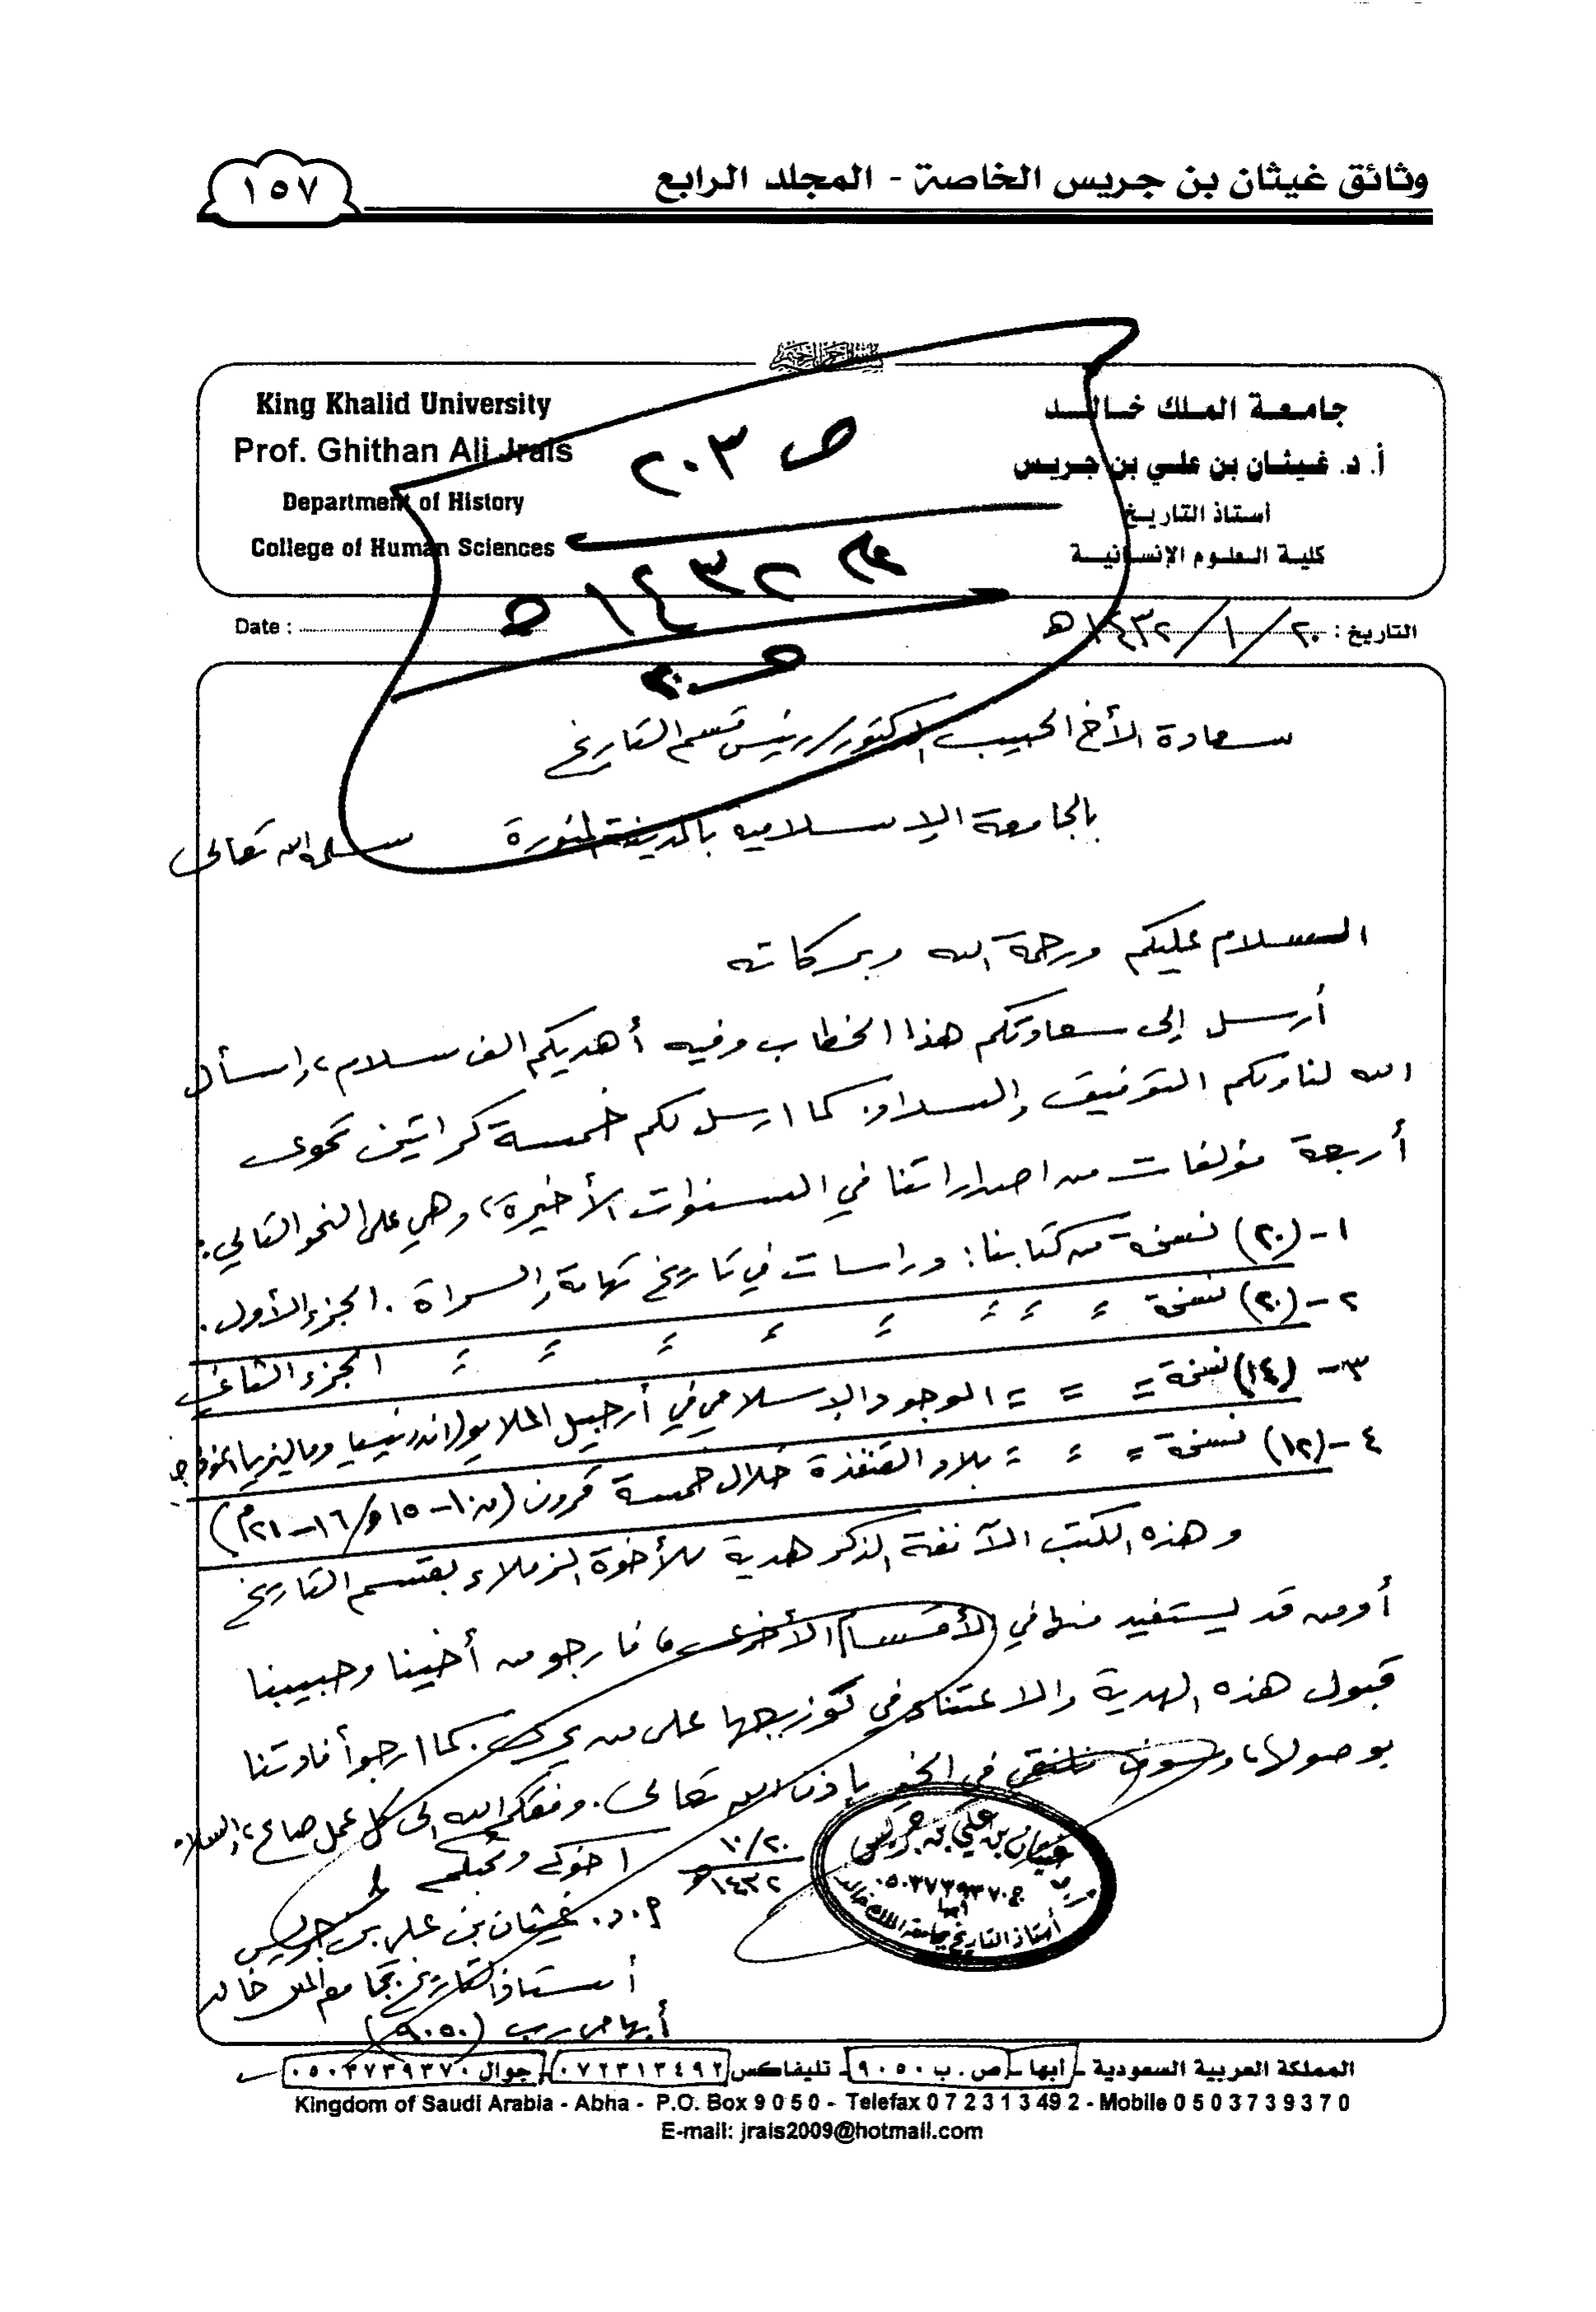 وثائق غيثان بن جريس الخاصة - المجلد الرابع
١٥٧
King Khalid University
Prof. Ghithan Ali Jrais
Department of History
College of Human Sciences
جامعة الملك خالد
أ. د. غيثان بن علي بن جريس
أستاذ التاريخ
كلية العلوم الإنسانية
ص ٢٠٣
عام ١٤٣٢هـ
Date :
التاريخ : ٢٠/١/١٤٣٢هـ
سعادة الأخ الحبيب الدكتور/ رئيس قسم التاريخ
بالجامعة الإسلامية بالمدينة المنورة سلمه الله تعالى
السلام عليكم ورحمة الله وبركاته
أرسل إلى سعادتكم هذا الخطاب وفيه أهديكم الف سلام، واسأل
الله لنا ولكم التوفيق والسداد. كما ارسل لكم خمسة كراتين تحوي
أربعة مؤلفات من اصداراتنا في السنوات الأخيرة، وهي على النحو التالي:
١- (٢٠) نسخة من كتابنا: دراسات في تاريخ تهامة والسراة. الجزء الأول.
٢- (٢٠) نسخة = = = = = = = = = الجزء الثاني
٣- (١٤) نسخة = = = الوجود الإسلامي في أرخبيل الملايو (اندونيسيا وماليزيا نموذجاً)
٤- (١٢) نسخة = = = بلاد القنفذة خلال خمسة قرون (ق١٠-١٥هـ/١٦-٢١م)
وهذه الكتب الآنفة الذكر هدية للأخوة الزملاء بقسم التاريخ
أو من قد يستفيد منها في الأقسام الأخرى، فارجو من أخينا وحبيبنا
قبول هذه الهدية والاعتناء في توزيعها على من يحرك. كما ارجو أفادتنا
بوصولها، وسوف نلتقي في الخير بإذن الله تعالى. وفقكم الله إلى كل عمل صالح، والسلام
أخوكم ومحبكم
٢٠/١٠
١٤٣٢هـ
أ.د. غيثان بن علي بن جريس
أستاذ التاريخ بجامعة الملك خالد
أبها ص.ب (٩٠٥٠)
غيثان بن علي بن جريس
ج ٠٥٠٣٧٣٩٣٧٠
أبها
أستاذ التاريخ بجامعة الملك خالد
المملكة العربية السعودية - أبها - ص. ب ٩٠٥٠ - تليفاكس ٠٧٢٣١٣٤٩٢ - جوال ٠٥٠٣٧٣٩٣٧٠
Kingdom of Saudi Arabia - Abha - P.O. Box 9 0 5 0 - Telefax 0 7 2 3 1 3 49 2 - Mobile 0 5 0 3 7 3 9 3 7 0
E-mail: jrais2009@hotmail.com